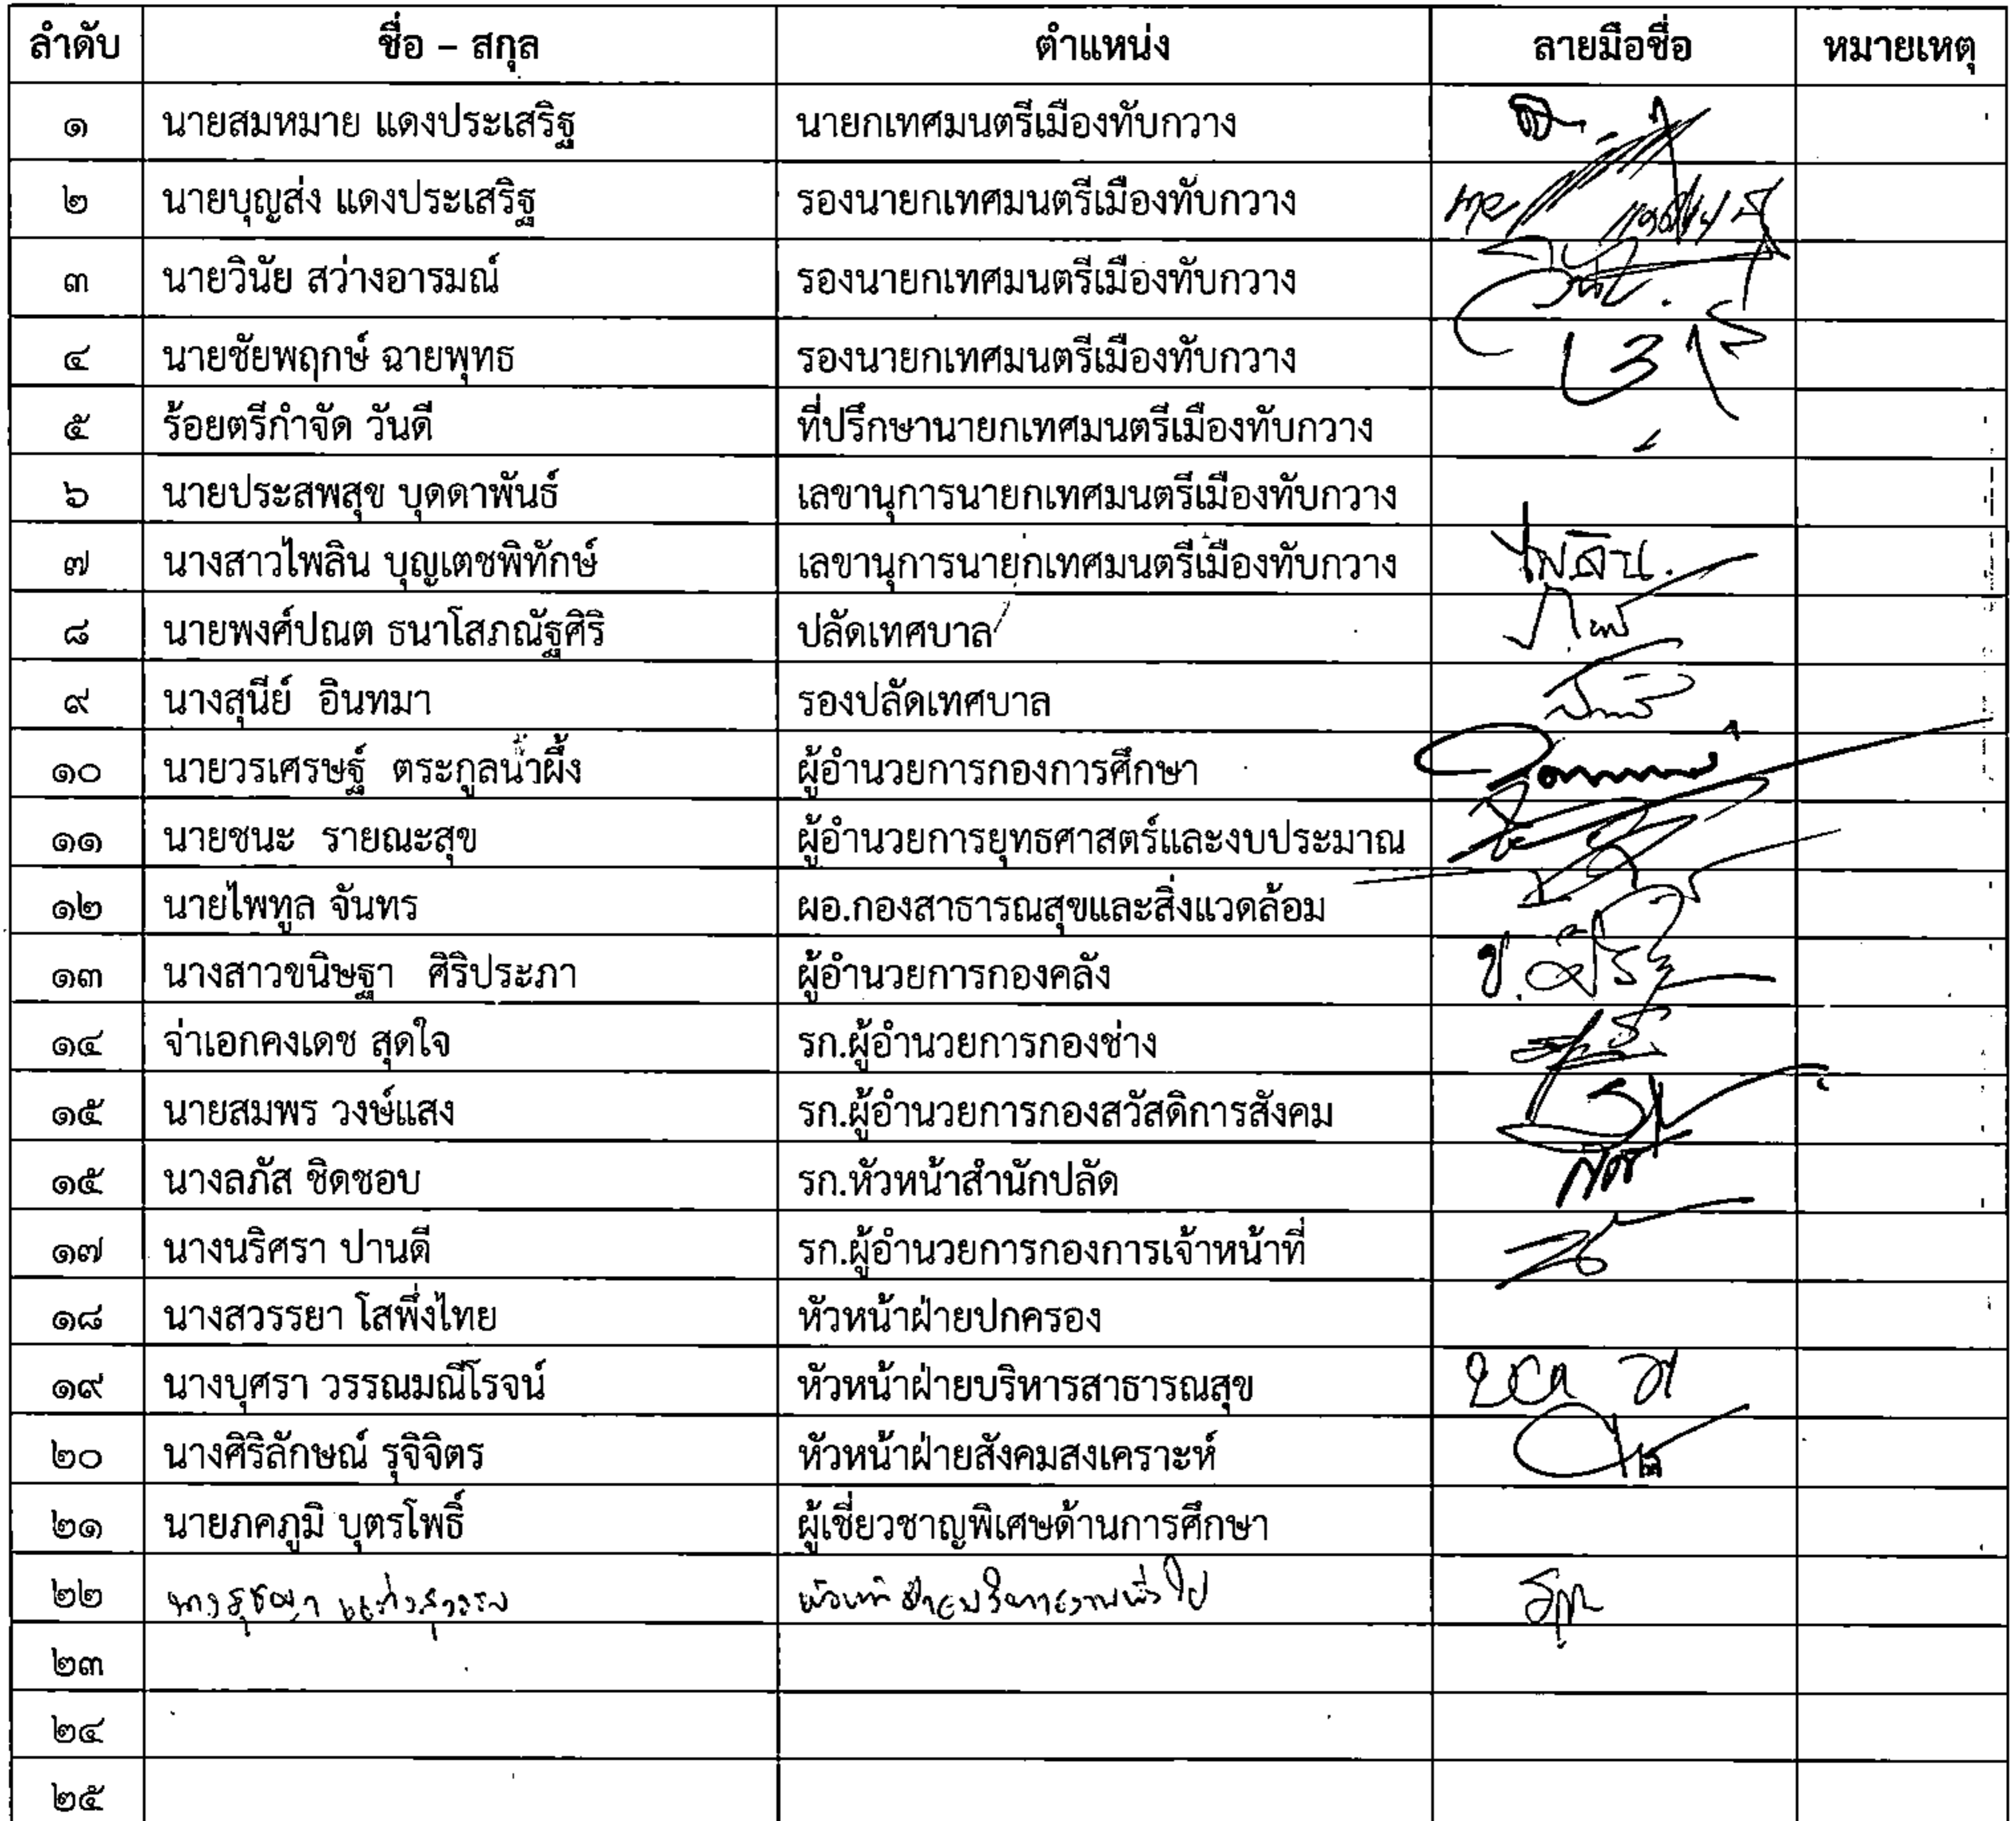 ลำดับ ชื่อ – สกุล ตำแหน่ง ลายมือชื่อ หมายเหตุ
๑ นายสมหมาย แดงประเสริฐ นายกเทศมนตรีเมืองทับกวาง
๒ นายบุญส่ง แดงประเสริฐ รองนายกเทศมนตรีเมืองทับกวาง
๓ นายวินัย สว่างอารมณ์ รองนายกเทศมนตรีเมืองทับกวาง
๔ นายชัยพฤกษ์ ฉายพุทธ รองนายกเทศมนตรีเมืองทับกวาง
๕ ร้อยตรีกำจัด วันดี ที่ปรึกษานายกเทศมนตรีเมืองทับกวาง
๖ นายประสพสุข บุดดาพันธ์ เลขานุการนายกเทศมนตรีเมืองทับกวาง
๗ นางสาวไพลิน บุญเตชพิทักษ์ เลขานุการนายกเทศมนตรีเมืองทับกวาง ไพลิน
๘ นายพงศ์ปณต ธนาโสภณัฐศิริ ปลัดเทศบาล
๙ นางสุนีย์ อินทมา รองปลัดเทศบาล
๑๐ นายวรเศรษฐ์ ตระกูลน้ำผึ้ง ผู้อำนวยการกองการศึกษา
๑๑ นายชนะ รายณะสุข ผู้อำนวยการยุทธศาสตร์และงบประมาณ
๑๒ นายไพทูล จันทร ผอ.กองสาธารณสุขและสิ่งแวดล้อม
๑๓ นางสาวขนิษฐา ศิริประภา ผู้อำนวยการกองคลัง
๑๔ จ่าเอกคงเดช สุดใจ รก.ผู้อำนวยการกองช่าง
๑๕ นายสมพร วงษ์แสง รก.ผู้อำนวยการกองสวัสดิการสังคม
๑๕ นางลภัส ชิดชอบ รก.หัวหน้าสำนักปลัด
๑๗ นางนริศรา ปานดี รก.ผู้อำนวยการกองการเจ้าหน้าที่
๑๘ นางสวรรยา โสพึ่งไทย หัวหน้าฝ่ายปกครอง
๑๙ นางบุศรา วรรณมณีโรจน์ หัวหน้าฝ่ายบริหารสาธารณสุข
๒๐ นางศิริลักษณ์ รุจิจิตร หัวหน้าฝ่ายสังคมสงเคราะห์
๒๑ นายภคภูมิ บุตรโพธิ์ ผู้เชี่ยวชาญพิเศษด้านการศึกษา
๒๒
๒๓
๒๔
๒๕